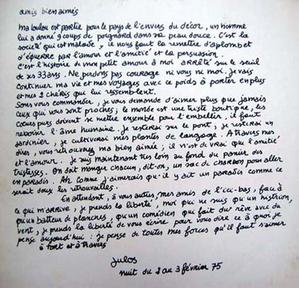 amis bien aimés
Ma loulou est partie pour le pays de l'envers du décor, un homme
lui a donné 9 coups de poignard dans sa peau douce. C'est la
société qui est malade, il nous faut la remettre d'aplomb et
d'équerre par l'amour et l'amitié et la persuasion.
C'est l'histoire de mon petit amour à moi arrêté sur le seuil
de ses 33 ans. Ne perdons pas courage ni vous ni moi. Je vais
continuer ma vie et mes voyages avec ce poids à porter en plus
et mes 2 chéris qui lui ressemblent.
Sans vous commander, je vous demande d'aimer plus que jamais
ceux qui vous sont proches; le monde est une triste boutique, les
cœurs purs doivent se mettre ensemble pour l'embellir, il faut
reboiser l'âme humaine. Je resterai sur le pont, je resterai un
jardinier, je cultiverai mes plantes de langage. A travers mes
dires, vous retrouverez ma bien aimée; il n'est de vrai que l'amitié
et l'amour. Je suis maintenant très loin au fond du panier des
tristesses. On doit manger chacun, dit-on, un sac de charbon pour aller
en paradis. Ah! comme j'aimerais qu'il y ait un paradis comme ce
serait doux les retrouvailles.
En attendant, à vous autres, mes amis de l'ici-bas, face à
ce qui m'arrive, je prends la liberté, moi qui ne suis qu'un histrion,
qu'un batteur de planches, qu'un comédien qui fait du rêve avec du
vent, je prends la liberté de vous écrire pour vous dire ce à quoi je
pense aujourd'hui: je pense de toutes mes forces qu'il faut s'aimer
à tort et à travers
Julos
nuit du 2 au 3 février 75